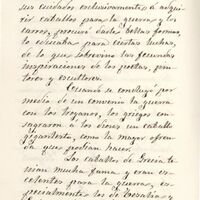 sus cuidados esclusivamente á adqui
rir caballos para la guerra y los
carros, procuró darle bellas formas,
lo educaba para ciertas luchas,
de lo que sobrevino las fecundas
inspiraciones de los poetas, pin
tores y escultores.
Cuando se concluyó por
medio de un convenio la guerra
con los troyanos, los griegos con
sagraron a los dioses un caballo
gigantesco, como la mayor ofren
da que podian hacer.
Los caballos de Grecia te
nian mucha fama y eran es
celentes para la guerra, es
pecialmente los de Tesalia y